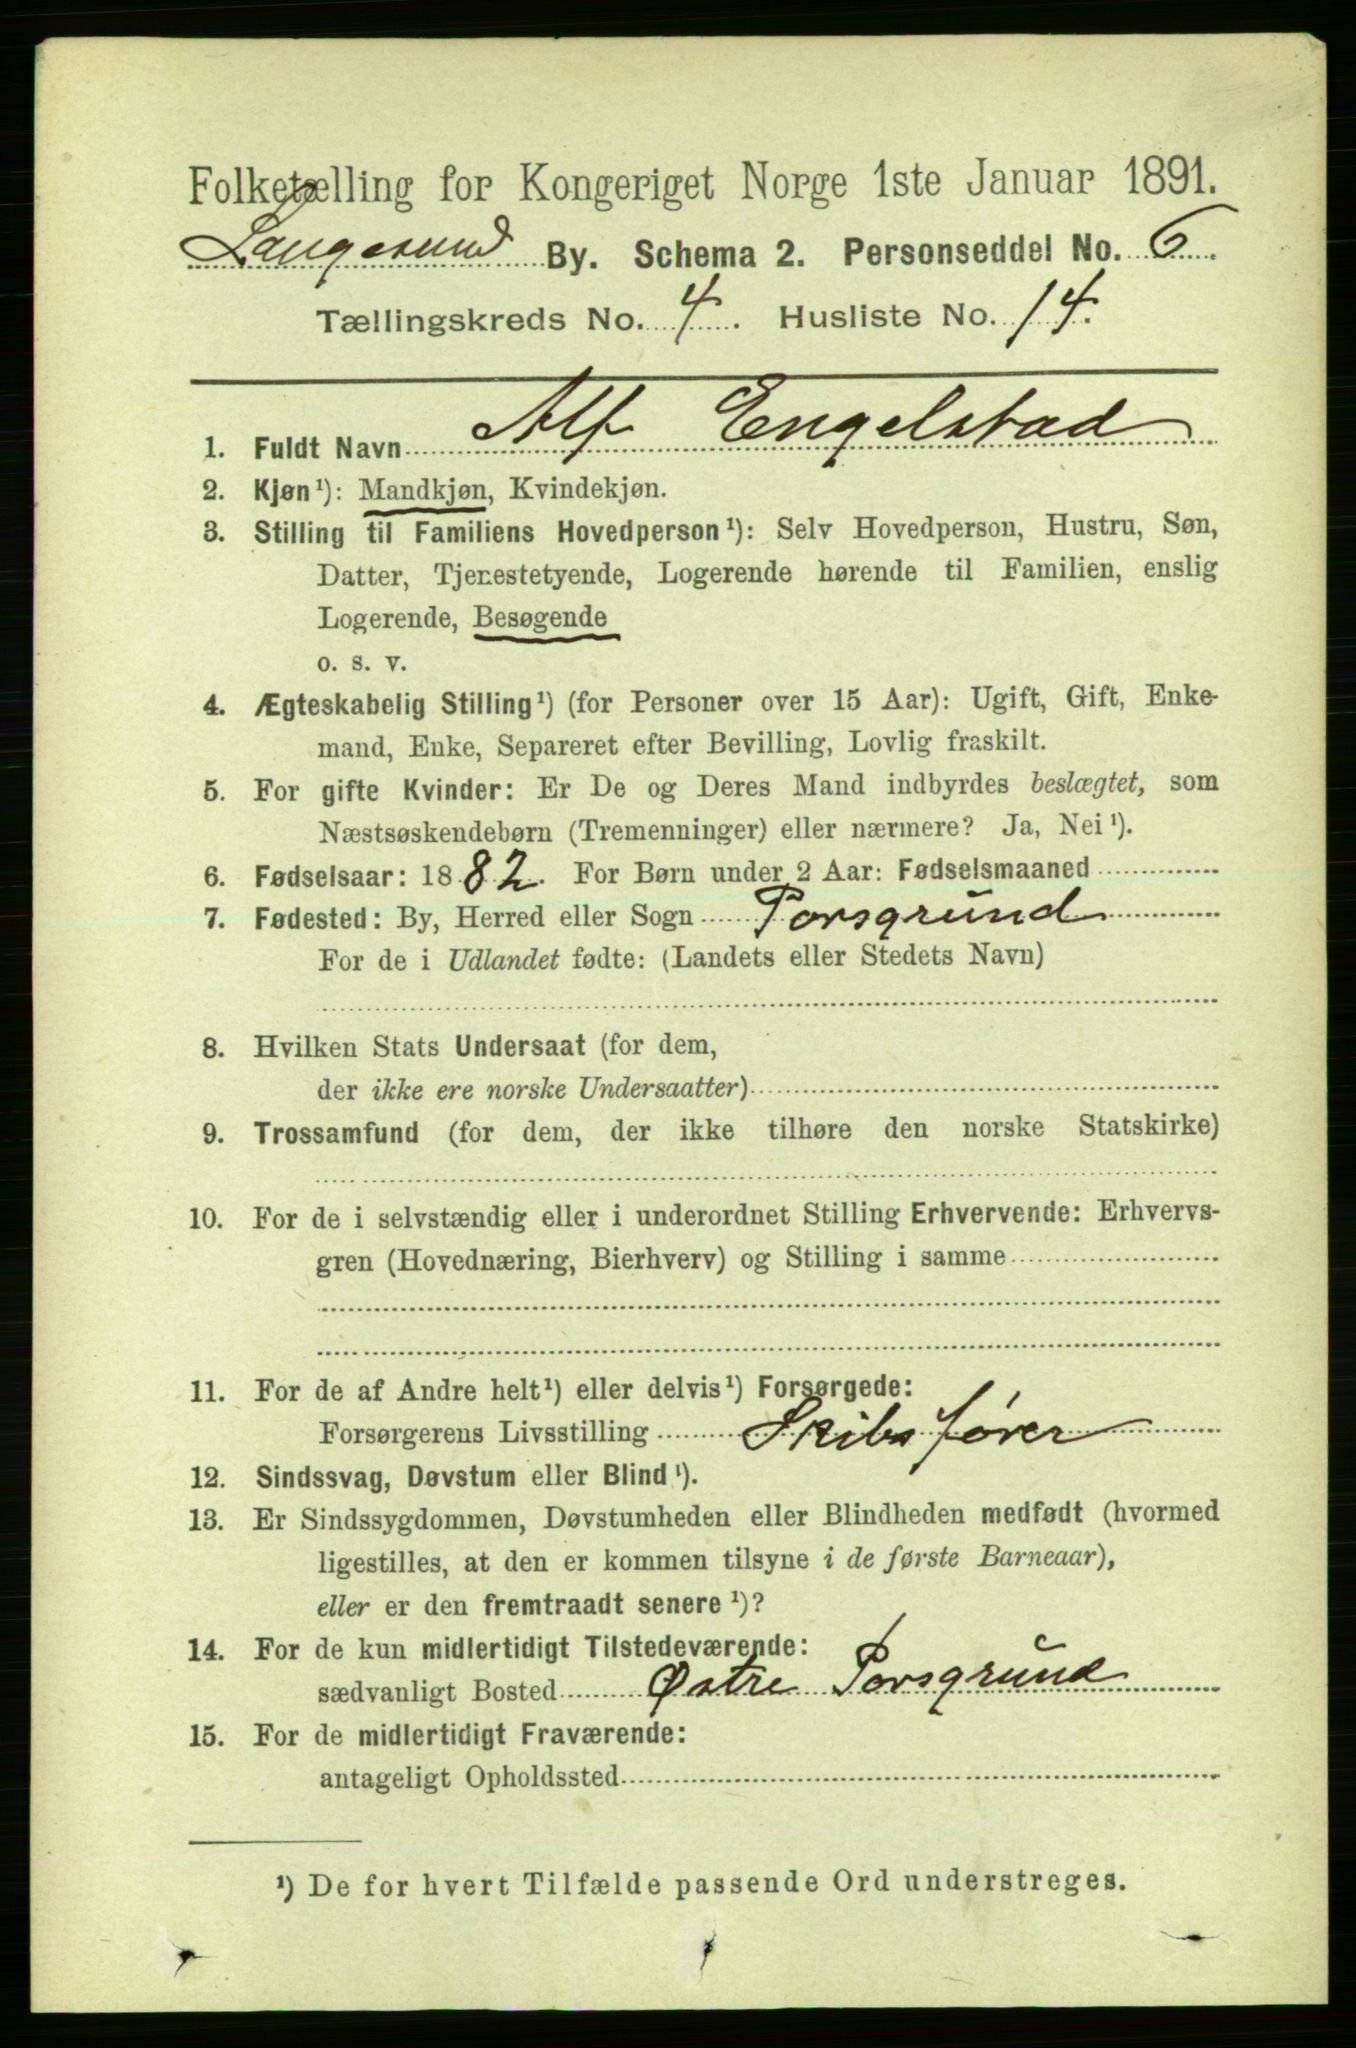 Folketælling for Kongeriget Norge 1ste Januar 1891.
Langesund By. Schema 2. Personseddel No. 6.
Tællingskreds No. 4. Husliste No. 14.
1. Fuldt Navn Alf Engelstad
2. Kjøn¹): Mandkjøn, Kvindekjøn.
3. Stilling til Familiens Hovedperson¹): Selv Hovedperson, Hustru, Søn,
Datter, Tjenestetyende, Logerende hørende til Familien, enslig
Logerende, Besøgende
o. s. v.
4. Ægteskabelig Stilling¹) (for Personer over 15 Aar): Ugift, Gift, Enke-
mand, Enke, Separeret efter Bevilling, Lovlig fraskilt.
5. For gifte Kvinder: Er De og Deres Mand indbyrdes beslægtet, som
Næstsøskendebørn (Tremenninger) eller nærmere? Ja, Nei¹).
6. Fødselsaar: 1882. For Børn under 2 Aar: Fødselsmaaned
7. Fødested: By, Herred eller Sogn Porsgrund
For de i Udlandet fødte: (Landets eller Stedets Navn)
8. Hvilken Stats Undersaat (for dem,
der ikke ere norske Undersaatter)
9. Trossamfund (for dem, der ikke tilhøre den norske Statskirke)
10. For de i selvstændig eller i underordnet Stilling Erhvervende: Erhvervs-
gren (Hovednæring, Bierhverv) og Stilling i samme
11. For de af Andre helt¹) eller delvis¹) Forsørgede:
Forsørgerens Livsstilling Skibsfører
12. Sindssvag, Døvstum eller Blind¹).
13. Er Sindssygdommen, Døvstumheden eller Blindheden medfødt (hvormed
ligestilles, at den er kommen tilsyne i de første Barneaar),
eller er den fremtraadt senere¹)?
14. For de kun midlertidigt Tilstedeværende:
sædvanligt Bosted Østre Porsgrund
15. For de midlertidigt Fraværende:
antageligt Opholdssted
¹) De for hvert Tilfælde passende Ord understreges.